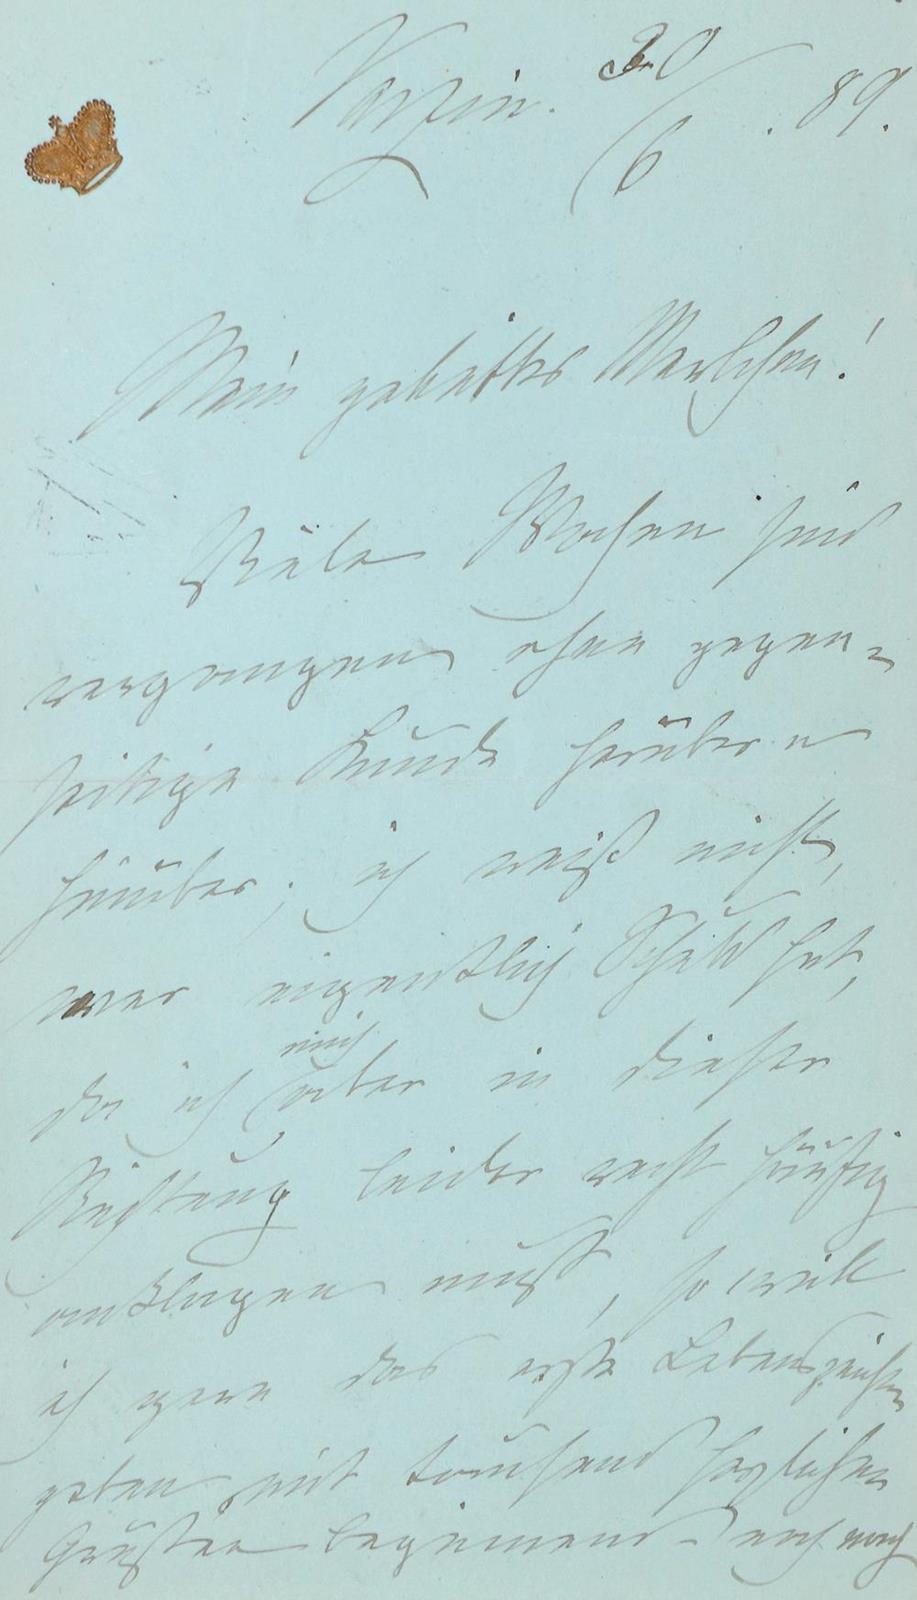 Varzin. 20/6. 89.
Mein geliebtes Malchen!
Viele Wochen sind
vergangen ohne gegen-
seitige Kunde herüber u
hinüber; ich weiß nicht,
wer eigentlich Schuld hat,
da ich mich aber in dieser
Richtung leider recht häufig
anklagen muß, so will
ich gern das erste Lebenszeichen
geben mit tausend herzlichen
Grüßen beginnend – noch